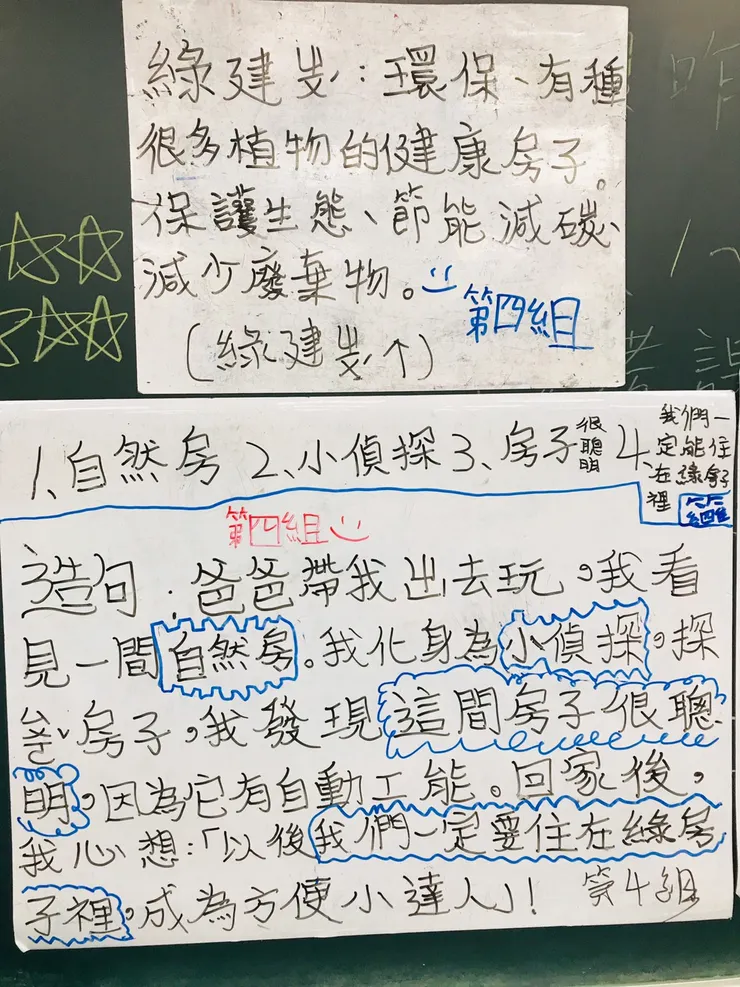 綠建ㄓㄨˊ:環保、有種
很多植物的健康房子。
保護生態、節能減碳、
減少廢棄物。
第四組
(綠建ㄓㄨˊ↑)
1、自然房 2、小偵探 3、房子很聰明 4、我們一定能住在綠房子裡
第四組
造句:爸爸帶我出去玩,我看
見一間自然房。我化身為小偵探,探
ㄙㄨㄛˇ房子,我發現這間房子很聰
明,因為它有自動工能。回家後,
我心想:「以後我們一定要住在綠房
子裡,成為方便小達人」!
第4組